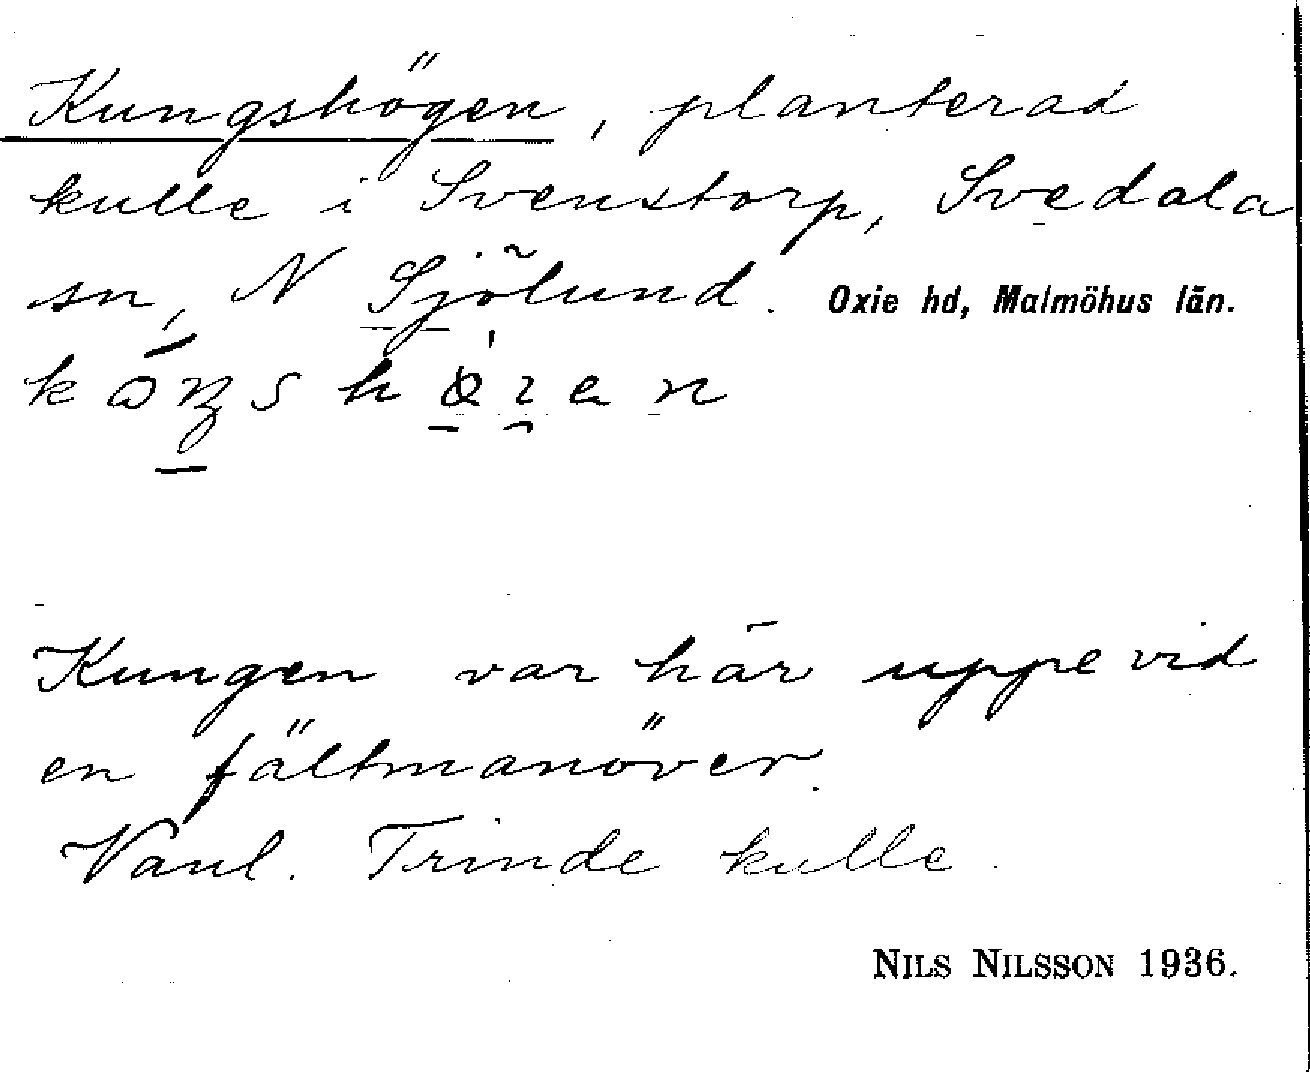 Kungshögen, planterad
kulle i Svenstorp, Svedala
sn, N Sjölund. Oxie hd, Malmöhus län.
Kungen var här uppe vid
en fältmanöver.
Vanl. Trinde kulle.
NILS NILSSON 1936.